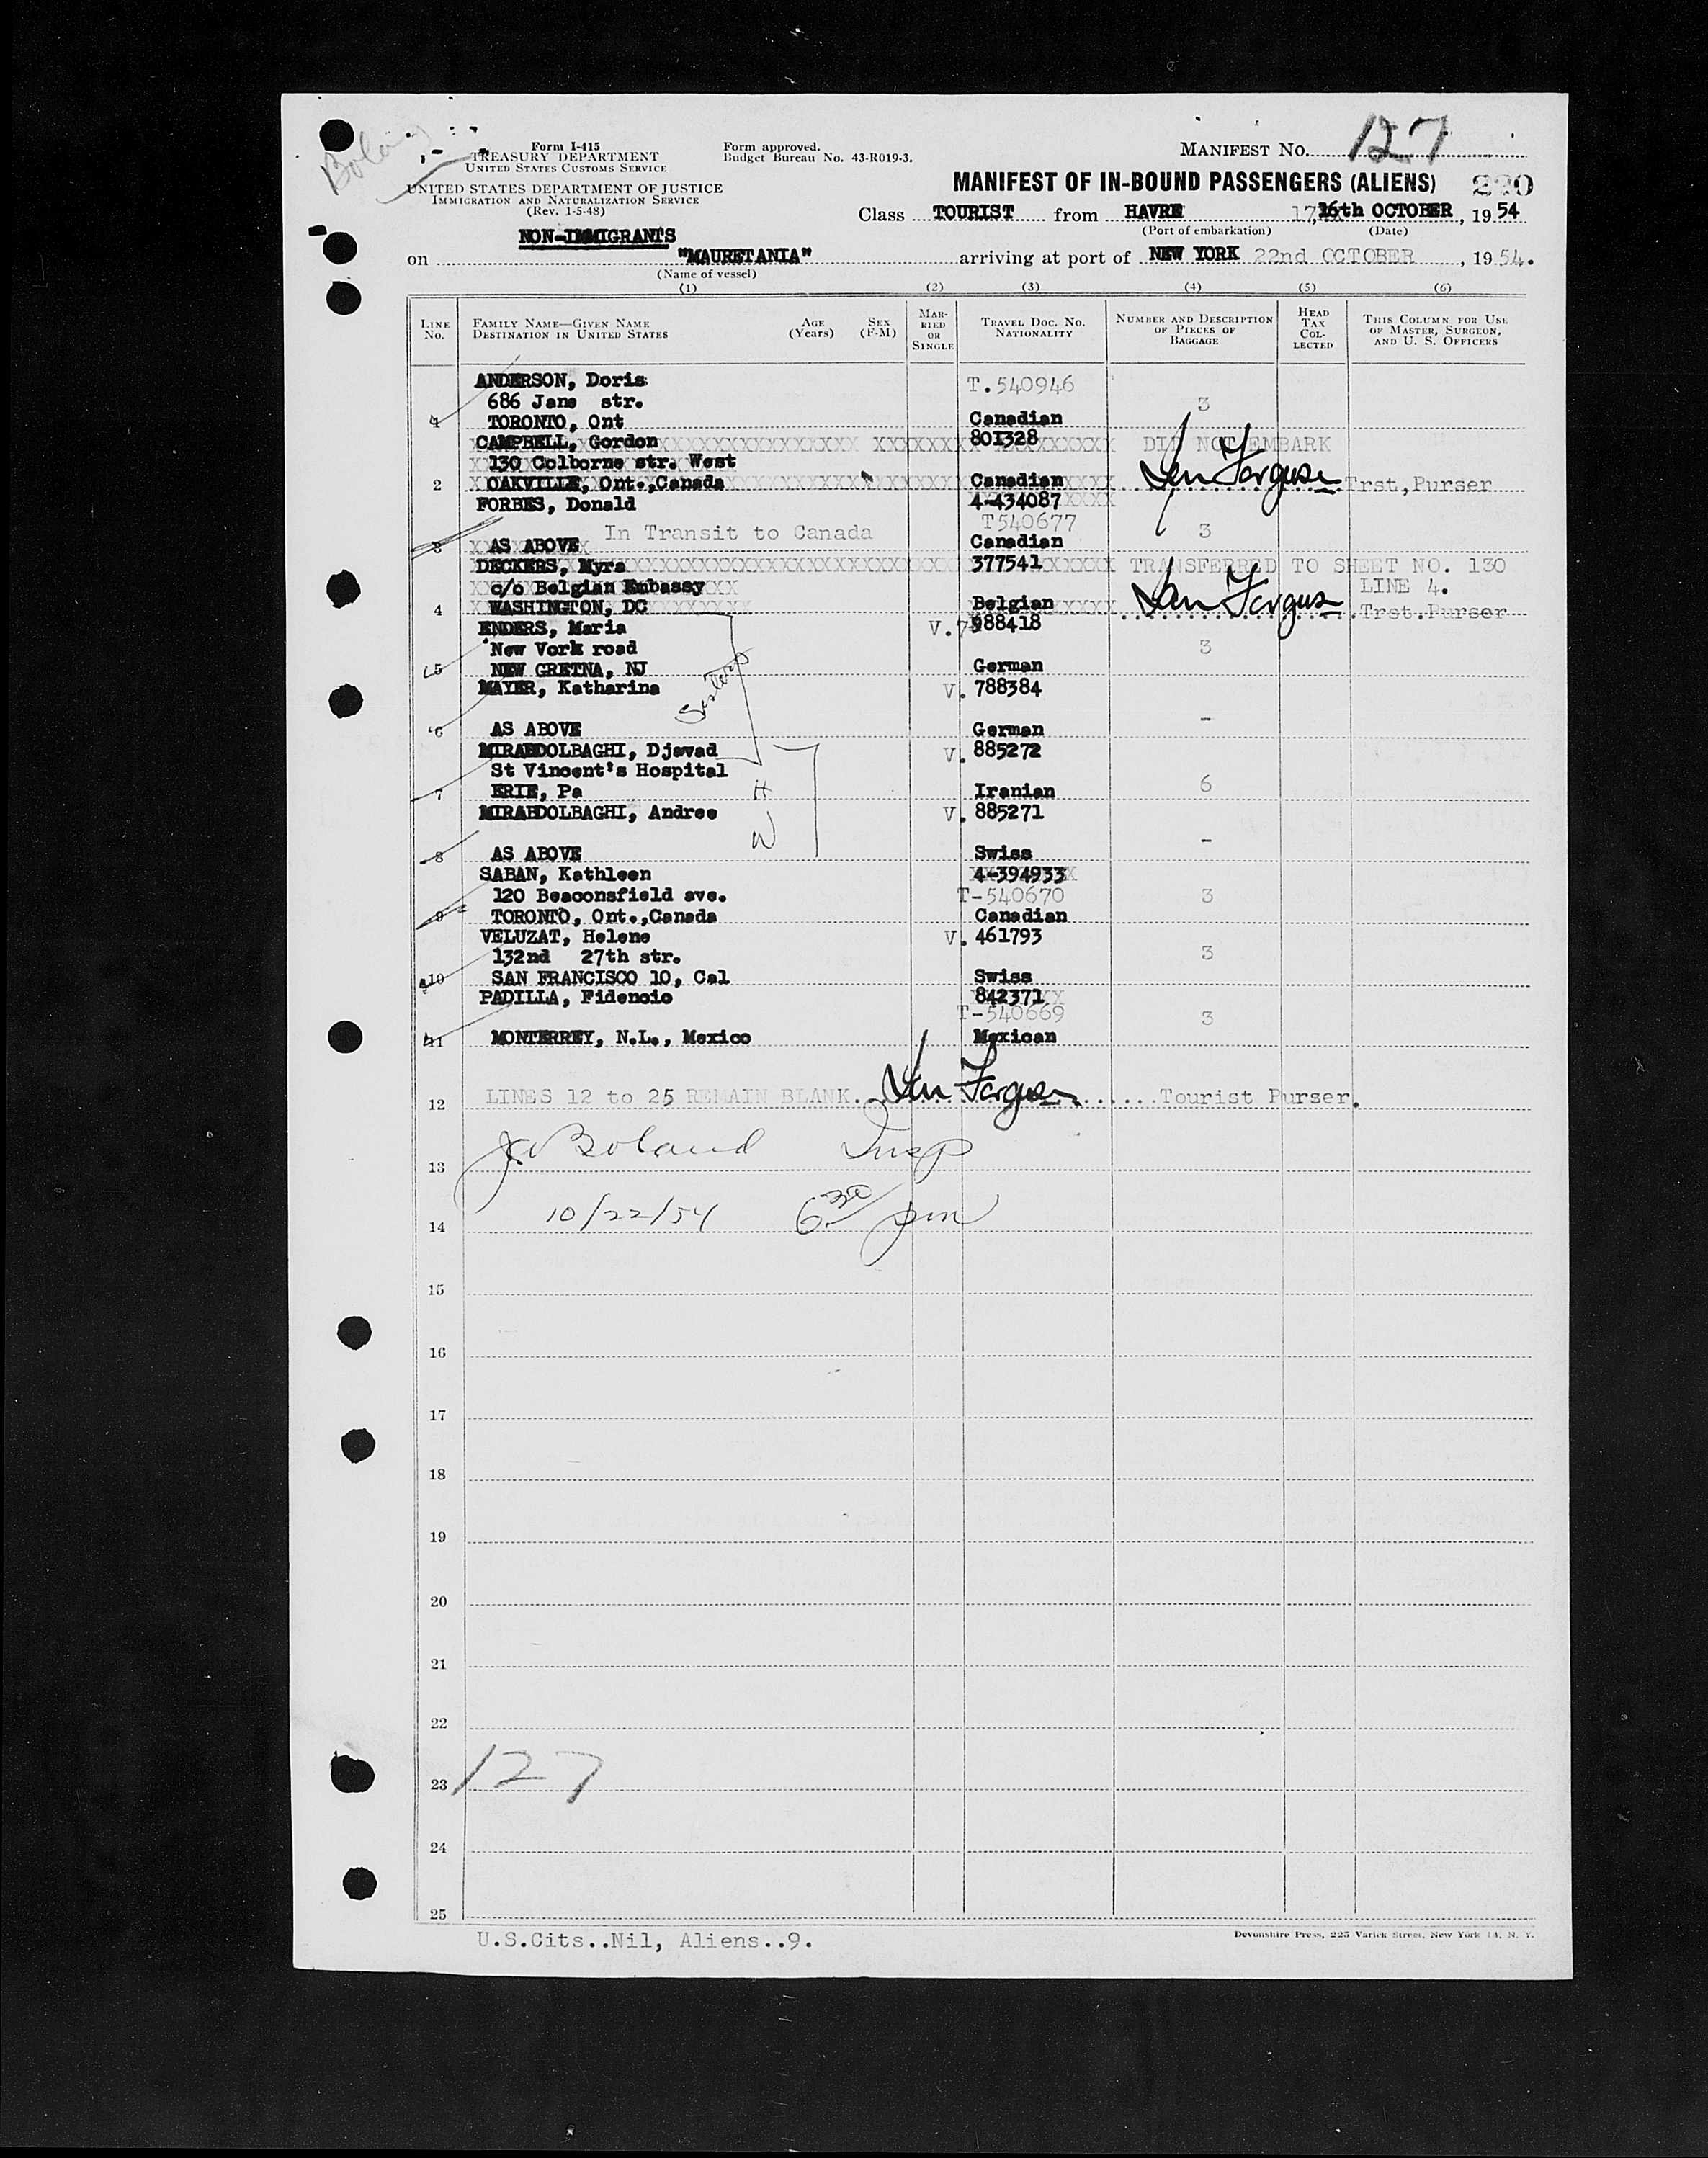 Form I-415
TREASURY DEPARTMENT
UNITED STATES CUSTOMS SERVICE
UNITED STATES DEPARTMENT OF JUSTICE
IMMIGRATION AND NATURALIZATION SERVICE
(Rev. 1-5-48)
Form approved.
Budget Bureau No. 43-R019-3.
MANIFEST NO. 127
MANIFEST OF IN-BOUND PASSENGERS (ALIENS)
Class TOURIST from HAVRE 17, 16th OCTOBER, 1954
(Port of embarkation) (Date)
NON-IMMIGRANTS
on "MAURETANIA" arriving at port of NEW YORK 22nd OCTOBER, 1954.
(Name of vessel)
(1) (2) (3) (4) (5) (6)
LINE NO. FAMILY NAME—GIVEN NAME DESTINATION IN UNITED STATES AGE (Years) SEX (F-M) MARRIED OR SINGLE TRAVEL DOC. NO. NATIONALITY NUMBER AND DESCRIPTION OF PIECES OF BAGGAGE HEAD TAX COLLECTED THIS COLUMN FOR USE OF MASTER, SURGEON, AND U. S. OFFICERS
ANDERSON, Doris T.540946
686 Jane str. 3
1 TORONTO, Ont Canadian
CAMPBELL, Gordon 801328 DID NOT EMBARK
130 Colborne str. West
2 OAKVILLE, Ont.,Canada Canadian Ian Ferguson Trst,Purser
FORBES, Donald 4-434087
In Transit to Canada T540677 3
3 AS ABOVE Canadian
DECKERS, Myra 377541 TRANSFERRED TO SHEET NO. 130
c/o Belgian Embassy LINE 4.
4 WASHINGTON, DC Belgian Ian Ferguson Trst.Purser
ENDERS, Maria V. 788418
New York road 3
5 NEW GRETNA, NJ German
MAYER, Katharina V. 788384
Sisters
6 AS ABOVE German -
MIRABDOLBAGHI, Djavad V. 885272
St Vincent's Hospital
7 ERIE, Pa H Iranian 6
MIRABDOLBAGHI, Andree V. 885271
W
8 AS ABOVE Swiss -
SABAN, Kathleen 4-394933
120 Beaconsfield ave. T-540670 3
9 TORONTO, Ont.,Canada Canadian
VELUZAT, Helene V. 461793
132nd 27th str. 3
10 SAN FRANCISCO 10, Cal Swiss
PADILLA, Fidencio 842371
T-540669 3
11 MONTERREY, N.L., Mexico Mexican
12 LINES 12 to 25 REMAIN BLANK. Ian Ferguson Tourist Purser.
13 Boland Insp
14 10/22/54 6 30/ pm
15
16
17
18
19
20
21
22
23 127
24
25
U.S.Cits..Nil, Aliens..9.
Devonshire Press, 225 Varick Street, New York 14, N. Y.